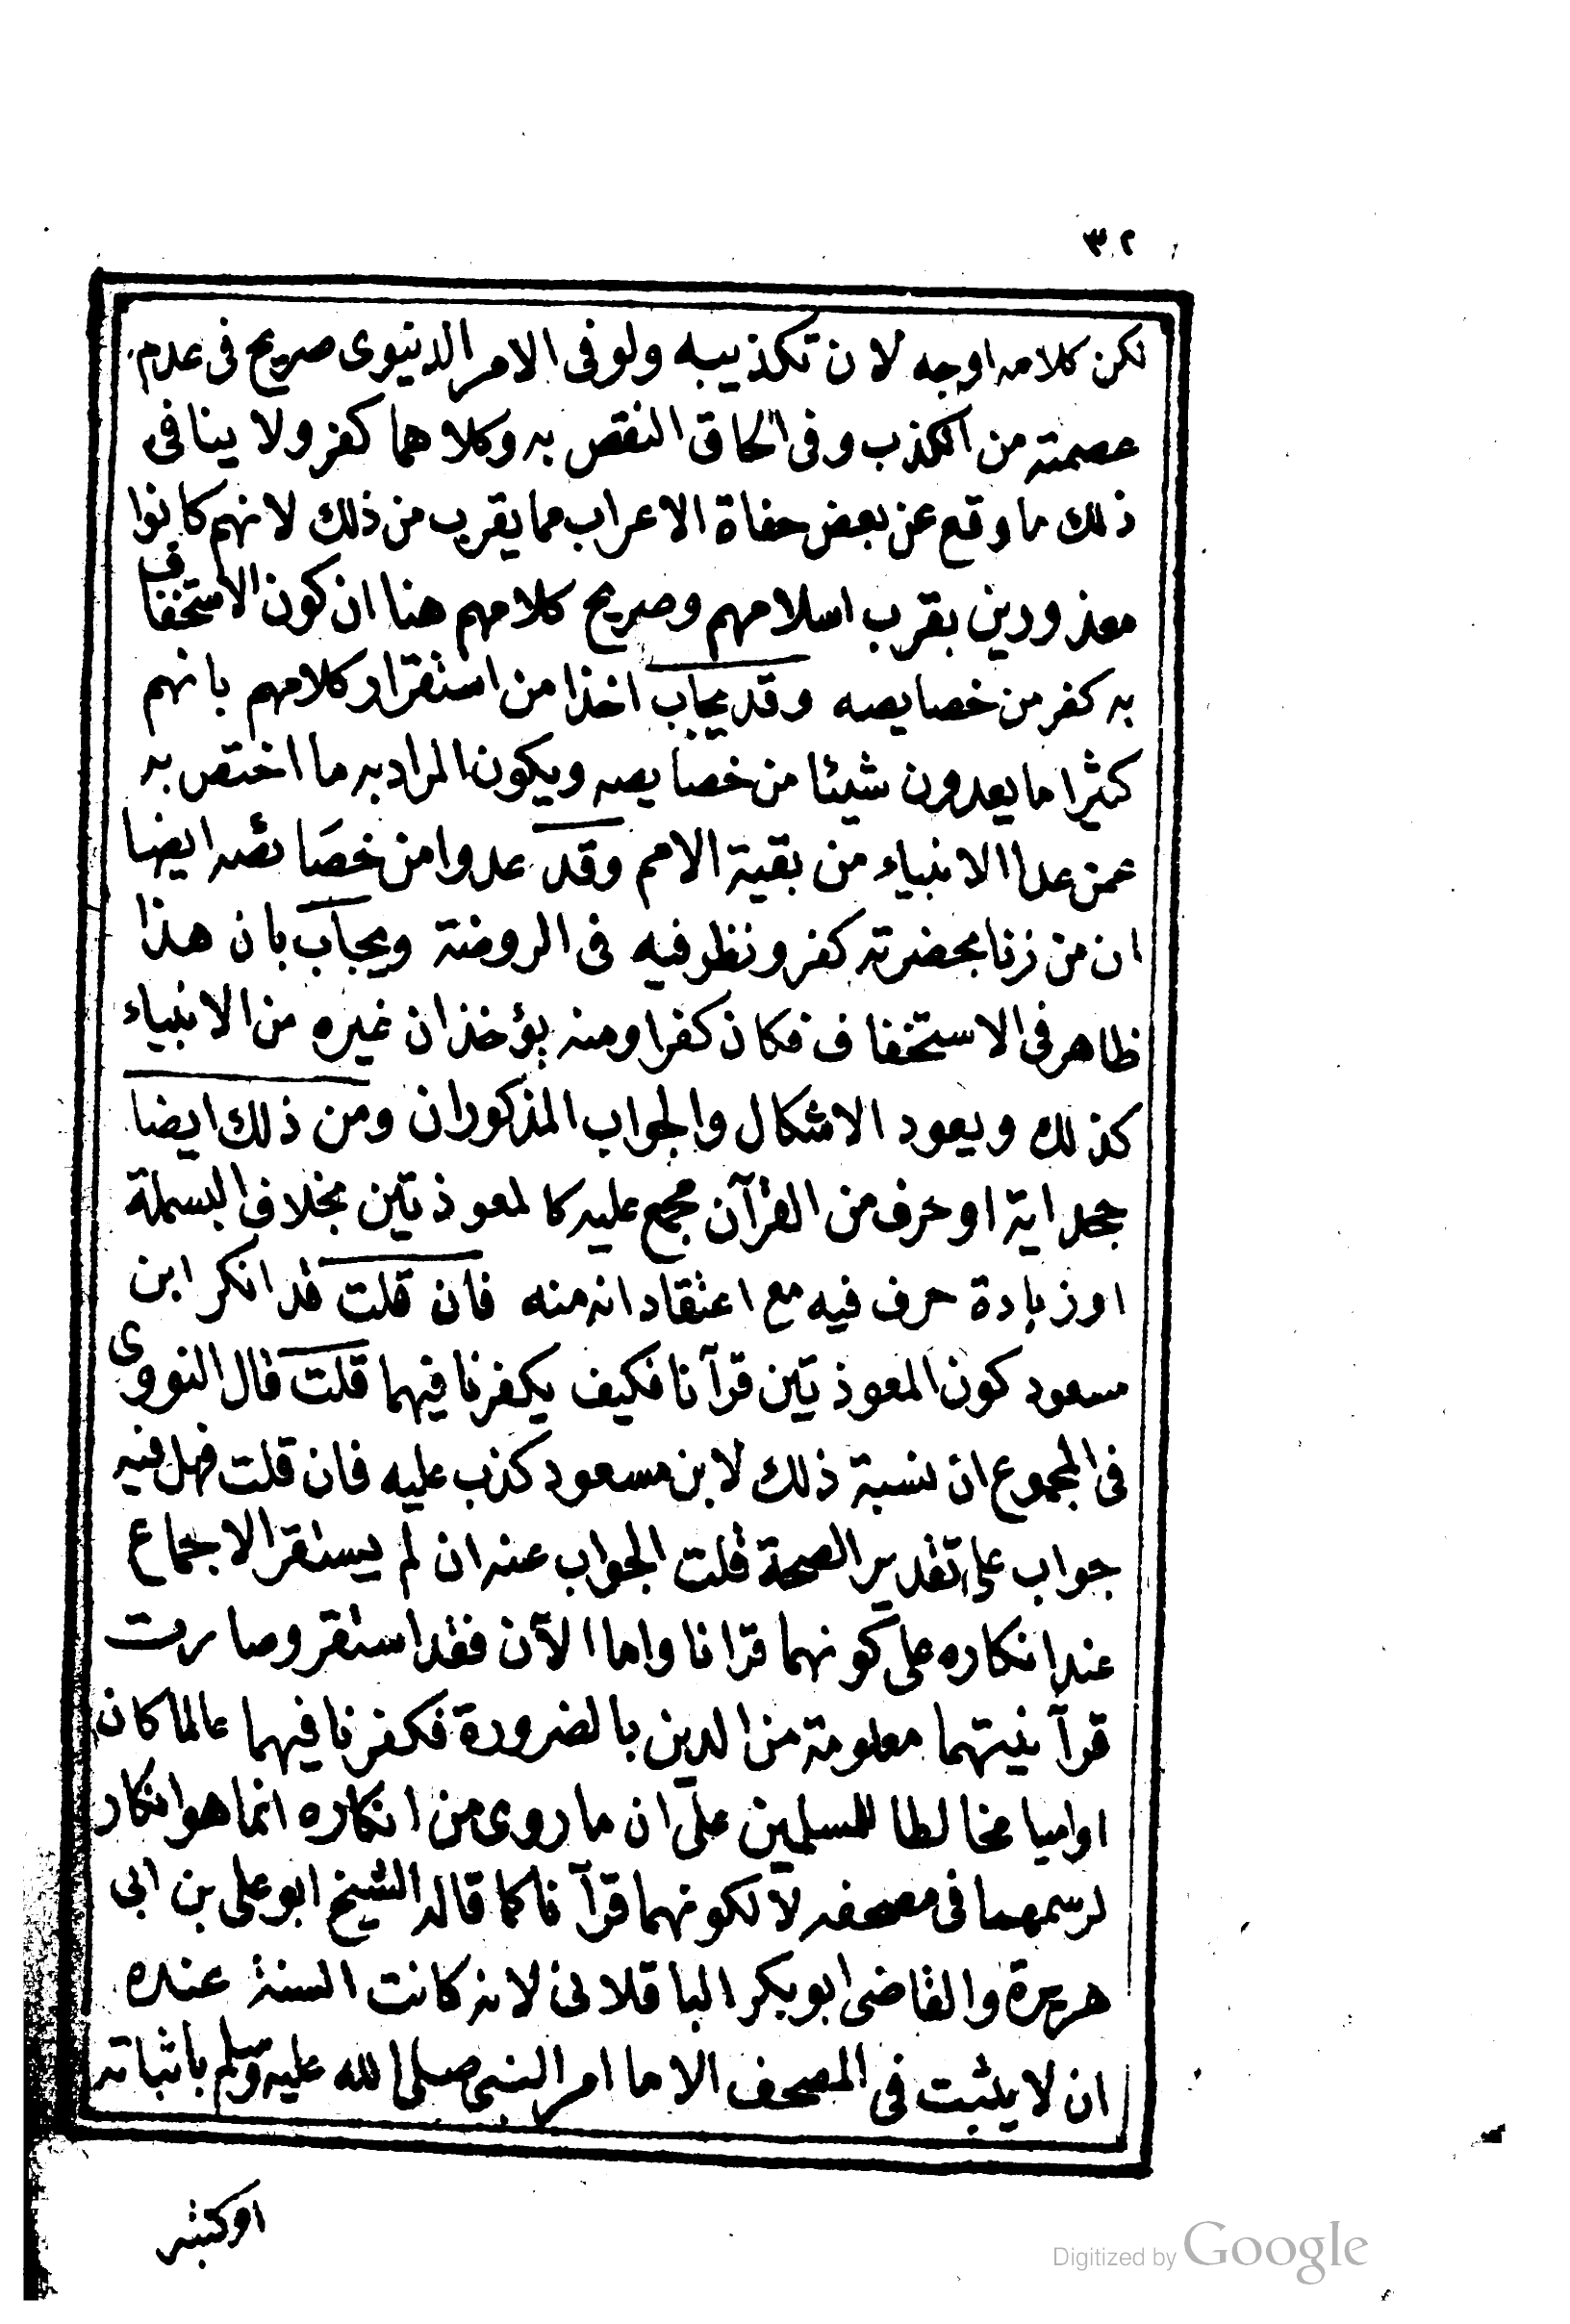 ٣٢
لكن كلامه اوجه لان تكذيبه ولو فى الامر الدنيوى صريح فى عدم
عصمته من الكذب وفى الحاق النقص به وكلاهما كفر ولا ينافى
ذلك ما وقع عن بعض جفاة الاعراب مما يقرب من ذلك لانهم كانوا
معذورين بقرب اسلامهم وصريح كلامهم هنا ان كون الاستخفاف
به كفر من خصايصه وقد يجاب اخذا من استقرار كلامهم بانهم
كثيرا ما يعدون شيئا من خصايصه ويكون المراد به ما اختص به
عمن عدا الانبياء من بقية الامم وقد عدوا من خصَائصه ايضا
ان من زنا بحضرته كفر ونظر فيه فى الروضة ويجاب بان هذا
ظاهر فى الاستخفاف فكان كفرا ومنه يؤخذ ان غيره من الانبياء
كذلك ويعود الاشكال والجواب المذكوران ومن ذلك ايضا
جحد اية او حرف من القرآن مجمع عليه كالمعوذتين بخلاف البسملة
او زيادة حرف فيه مع اعتقاد انه منه فان قلت قد انكر ابن
مسعود كون المعوذتين قرآنا فكيف يكفر نافيهما قلت قال النووى
فى المجموع ان نسبة ذلك لابن مسعود كذب عليه فان قلت فهل فيه
جواب على تقدير الصحة قلت الجواب عنه ان لم يستقر الاجماع
عند انكاره على كونهما قرانا واما الآن فقد استقر وصارت
قرآنيتهما معلومة من الدين بالضرورة فكفر نافيهما عالما كان
او اميا مخالطا للمسلمين على ان ما روى من انكاره انما هو انكار
لرسمهما فى مصحفه لا لكونهما قرآنا كما قاله الشيخ ابو على بن ابى
هريرة والقاضى ابو بكر الباقلانى لانه كانت السنة عنده
ان لا يثبت فى المصحف الا ما امر النبى صلى الله عليه وسلم باثباته
او كثير
Digitized by Google